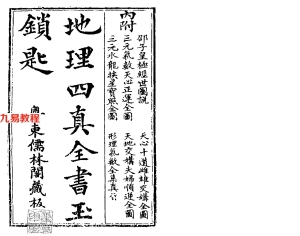 內附
邵子皇極經世圖說
三元氣數天心正運全圖
三元水龍扶星寶照全圖
天心十道雌雄交媾全圖
天地交媾夫婦情通全圖
形理氣數全集真
地理四真全書玉
鎖匙
粵東儒林閣藏板
九易教程
www.99jyi.com